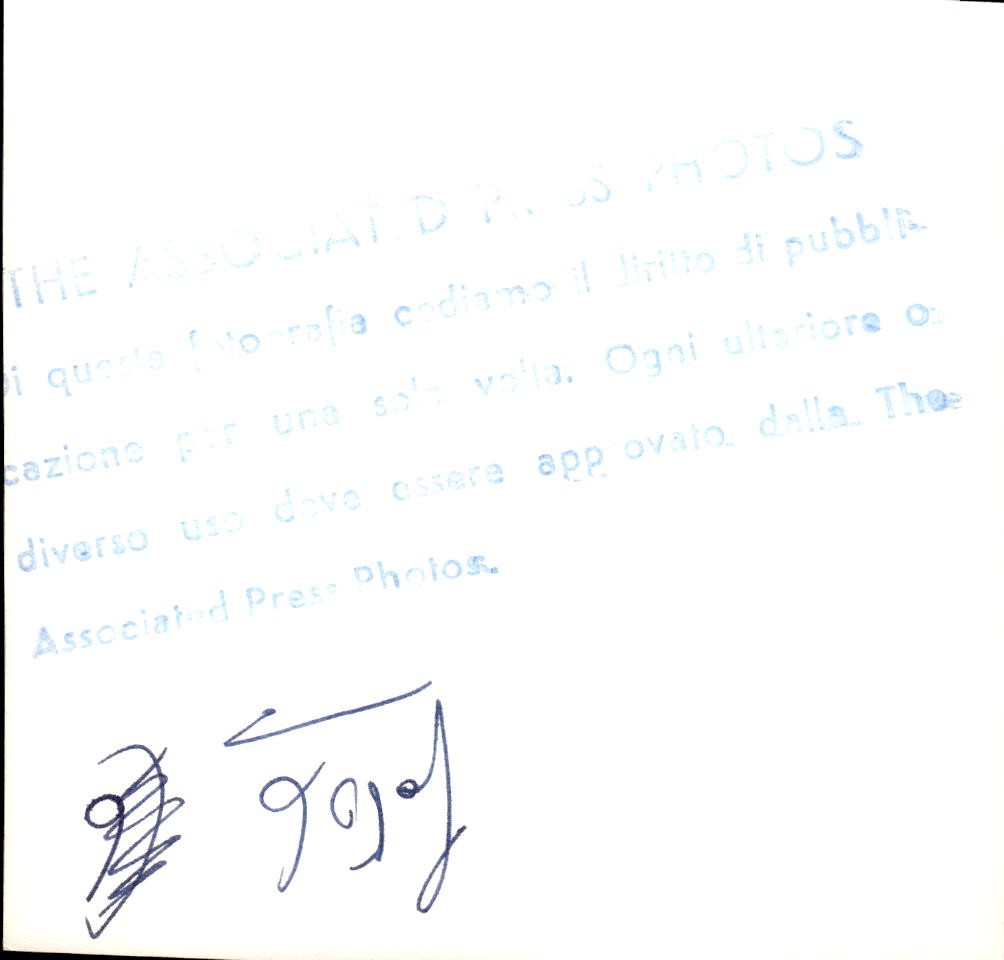 THE ASSOCIATED PRESS PHOTOS
Di questa fotografia cediamo il diritto di pubbli-
cazione per una sola volta. Ogni ulteriore o
diverso uso deve essere approvato dalla The
Associated Press Photos.